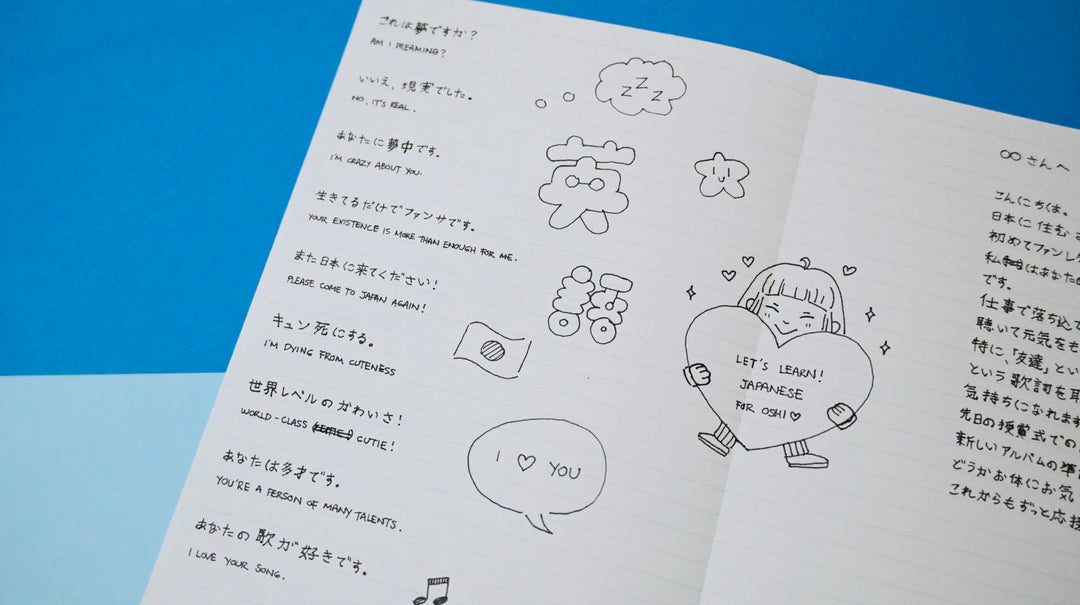 これは夢ですか?
AM I DREAMING?
いいえ、現実でした。
NO, IT'S REAL.
あなたに夢中です。
I'M CRAZY ABOUT YOU.
生きてるだけでファンサです。
YOUR EXISTENCE IS MORE THAN ENOUGH FOR ME.
また日本に来てください!
PLEASE COME TO JAPAN AGAIN!
キュン死にする。
I'M DYING FROM CUTENESS
世界レベルのかわいさ!
WORLD-CLASS CUTIE!
あなたは多才です。
YOU'RE A PERSON OF MANY TALENTS.
あなたの歌が好きです。
I LOVE YOUR SONG.
zZz
I ♡ YOU
LET'S LEARN!
JAPANESE
FOR OSHI♡
○○さんへ
こんにちは。
日本に住む
初めてファンレ
私はあなたの
です。
仕事で落ち込んで
聴いて元気をも
特に、「友達」とい
という歌詞を
気持ちになれます
先日の授賞式での
新しいアルバムの準
どうかお体にお気
これからもずっと応援